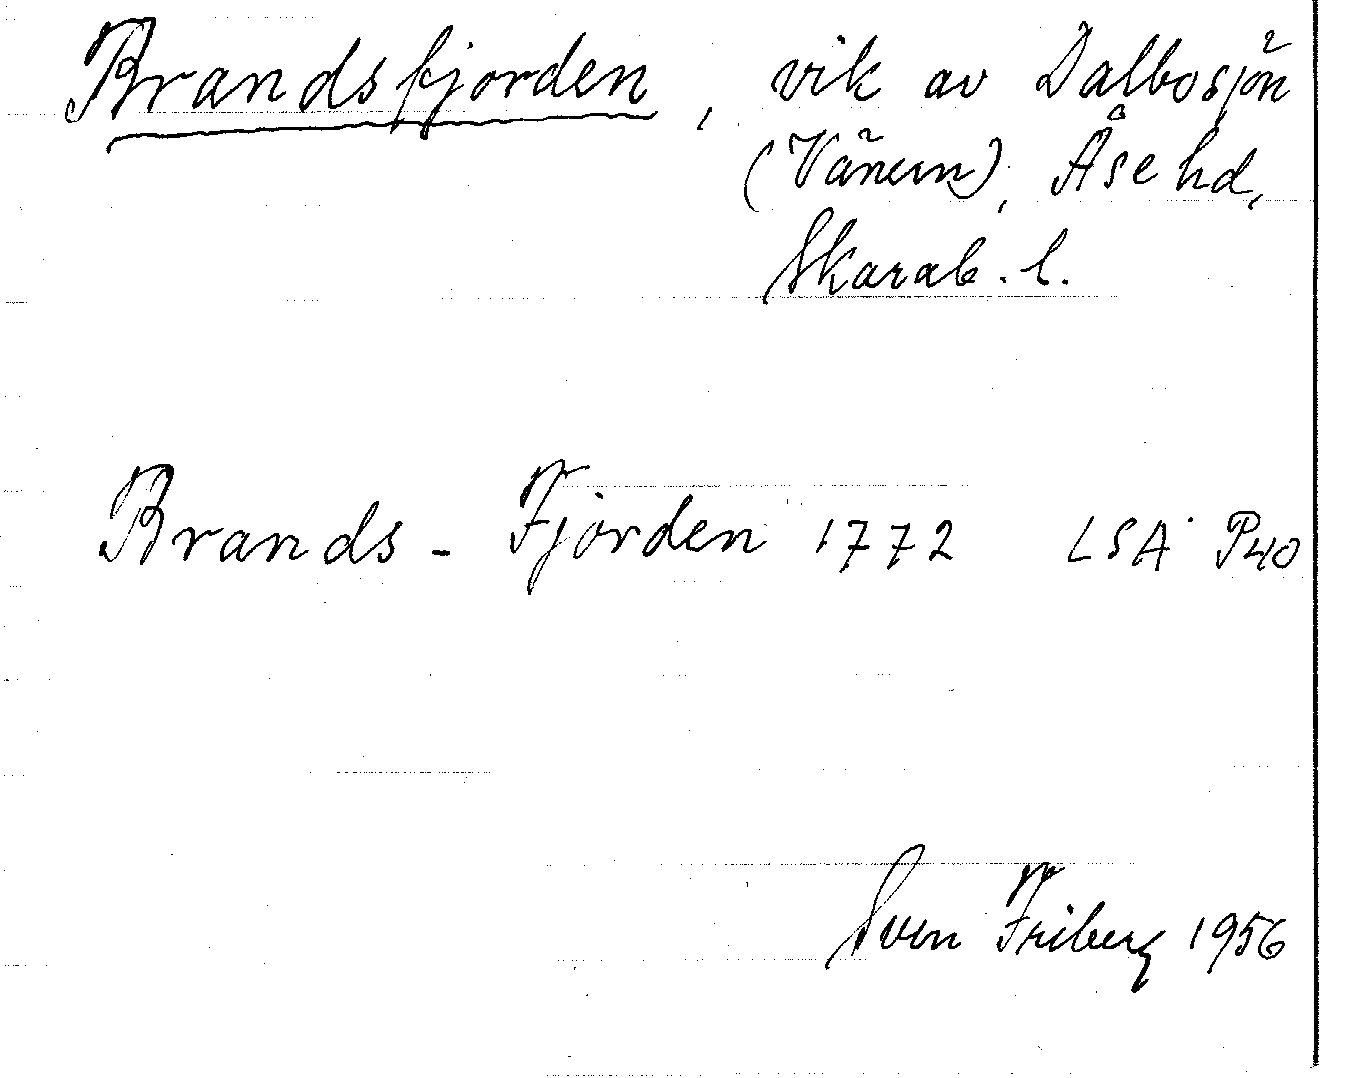 Brandsfjorden, vik av Dalbosjön
(Vänern), Åse hd,
Skarab. l.
Brands-Fjorden 1772 LSA P40
Sven Friberg 1956